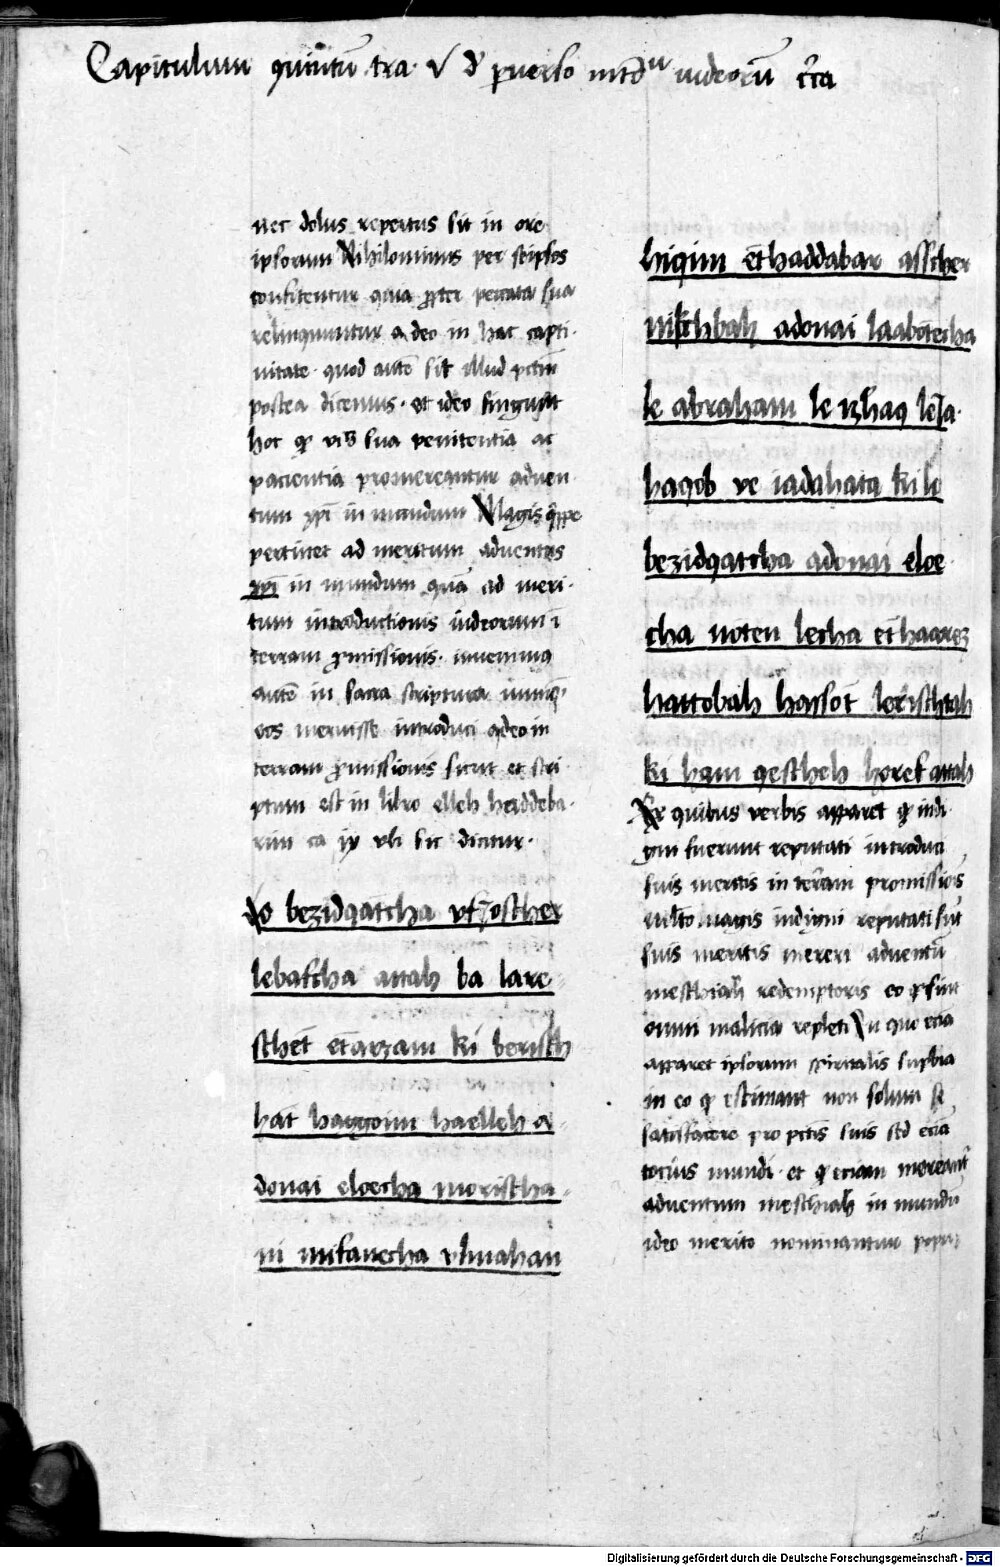 Capitulum quintū tra. V đ peruerso intđu iudeorū c̄ca
nec dolus repertus sit in ore
ipsorum Nihilominus per seipsos
confitentur quia ꝓpter peccata sua
relinquuntur a deo in hac capti-
uitate. quod autē sit illud pctm̄
postea dicemus. et ideo fingunt
hoc ꝙ sua penitentia ac
paciencia promereantur aduen-
tum xp̄i in mundum Magis quippe
pertinet ad meritum aduentus
xp̄i in mundum quā ad meri-
tum introductionis iudeorum ī
terram ꝓmissionis. inuenimus
autē in sacra scriptura
eos meruisse introduci a deo in
terram ꝓmissionis sicut et scri-
ptum est in libro elleh haddeba-
rim ca ix vbi sic dicitur.
lo bezidqatcha oscher
lebafcha attah ba lare-
schet et arzam ki berisch
hat haggoim haelleh a-
donai eloecha morischa-
m mifanecha vlmahan
hiqim et haddabar asscher
nischbah adonai laabotecha
le abraham le izhaq leia-
haqob ve iadahata ki lo
bezidqatcha adonai eloe-
cha noten lecha et haarez
hattobah hassot lerischtah
ki ham qescheh horef attah
Ex quibus verbis apparet ꝙ indi-
gni fuerunt reputati introduci
suis meritis in terram promissiōis
multo magis indigni reputati sūt
suis meritis mereri aduentū
meschiah redemptoris eo ꝙ sint
omni malicia repleti In quo ecia
apparet ipsorum spiritalis supbia
in eo ꝙ estimant non solum se
satisfacere pro pctis suis sed eciā
tocius mundi. et ꝙ eciam mereant᷑
aduentum meschiah in mundū
ideo merito nominantur popu